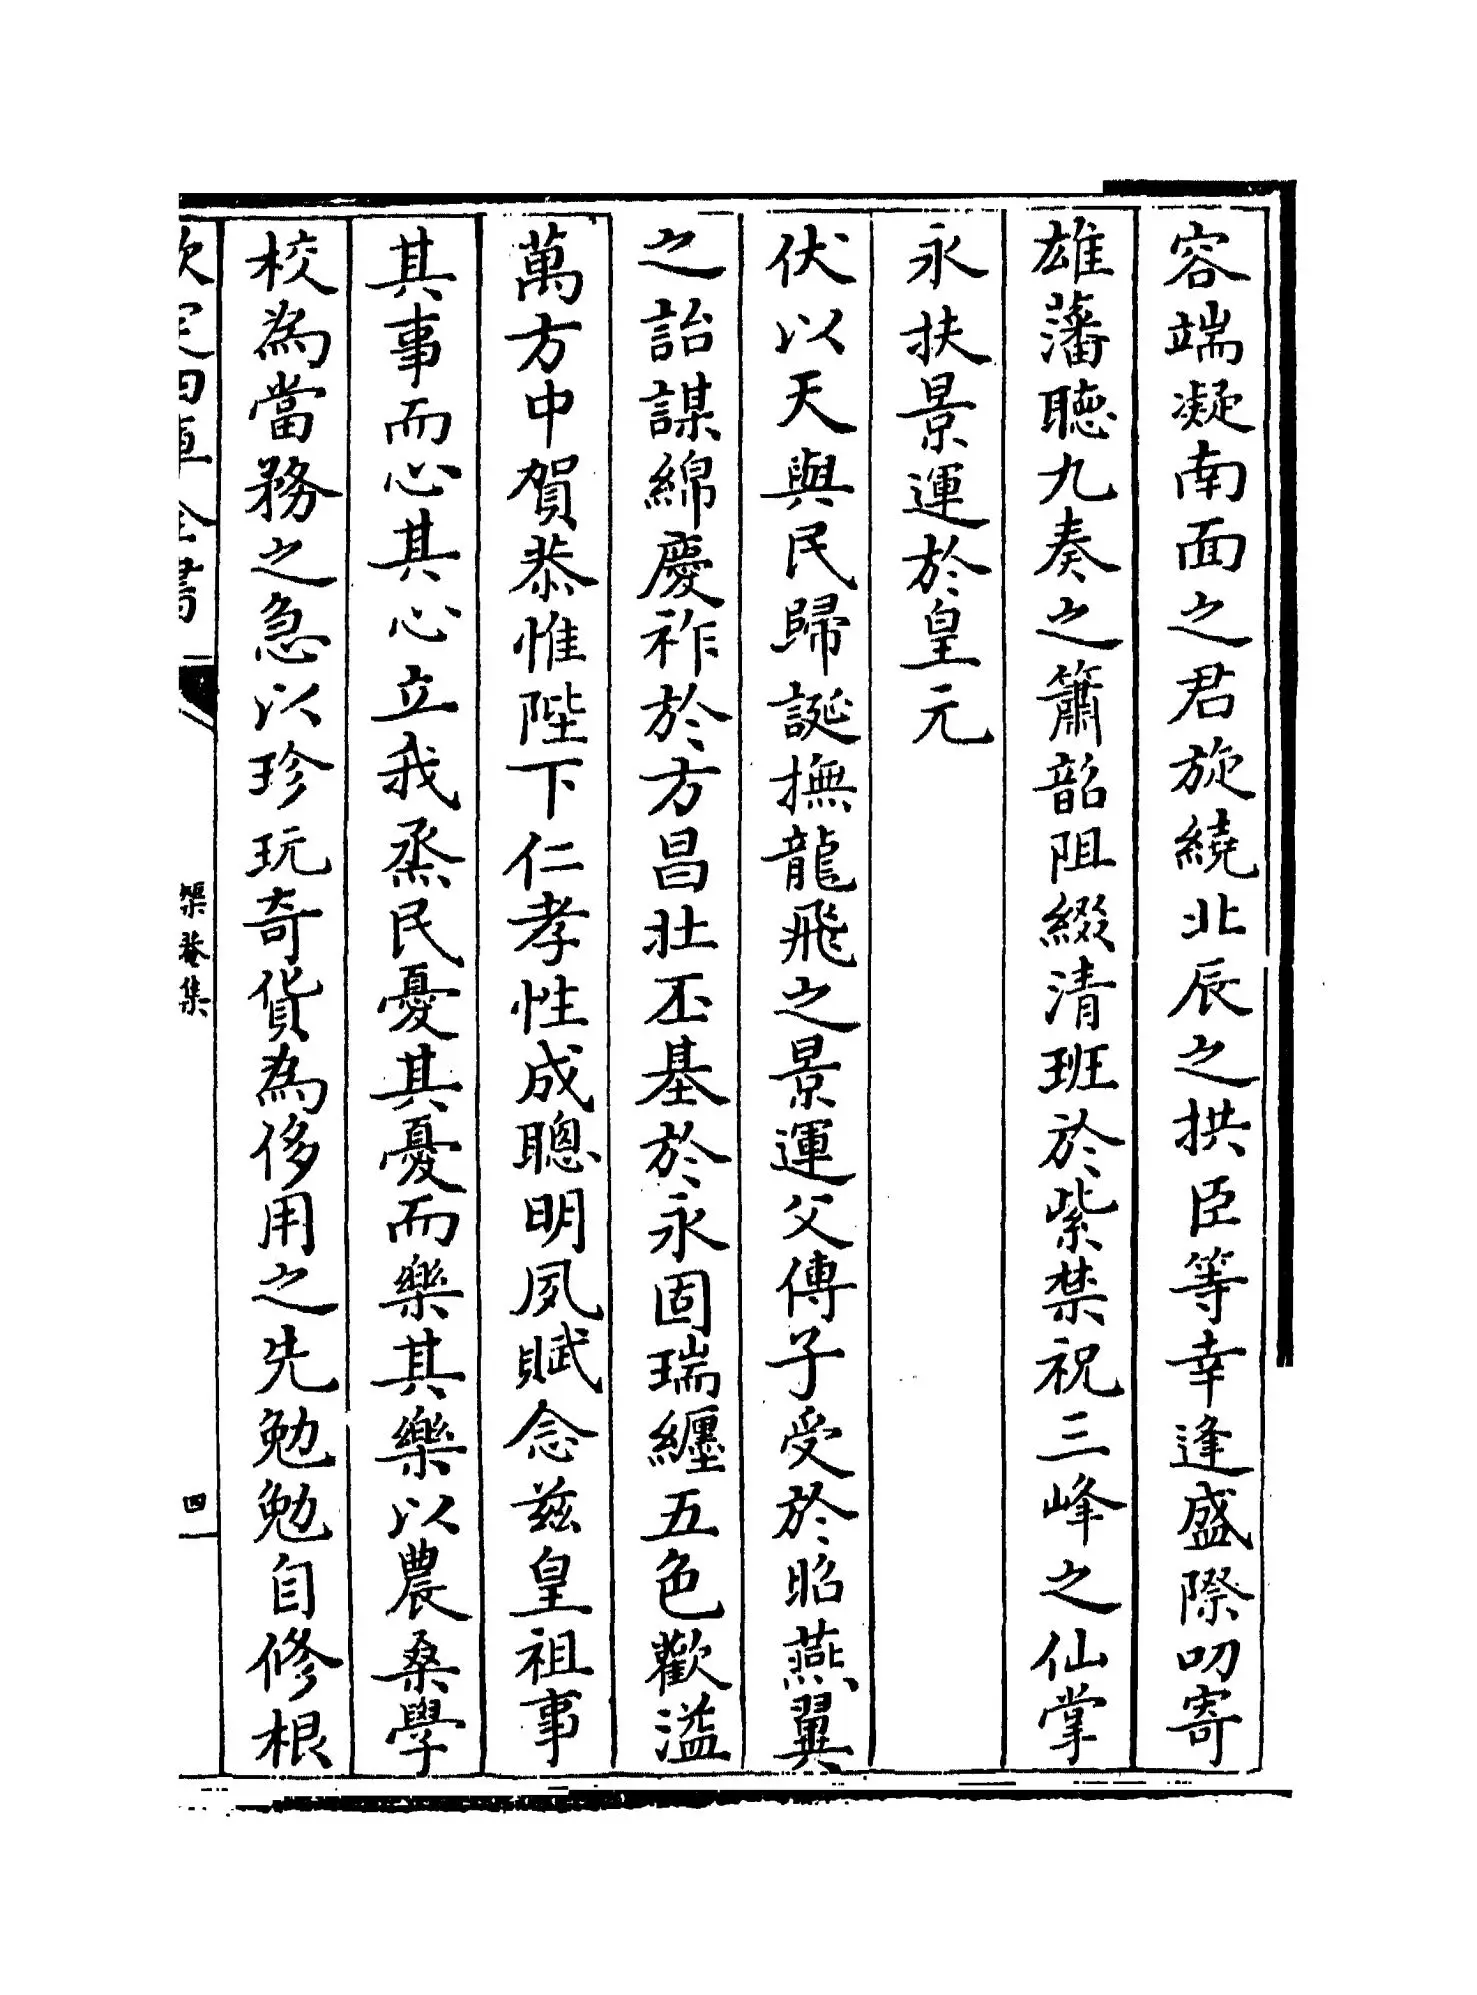 容端凝南面之君旋繞北辰之拱臣等幸逢盛際叨寄
雄藩聽九奏之簫韶阻綴清班於紫禁祝三峰之仙掌
永扶景運於皇元
伏以天與民歸誕撫龍飛之景運父傳子受於昭燕翼
之詒謀綿慶祚於方昌壯丕基於永固瑞纏五色歡溢
萬方中賀恭惟陛下仁孝性成聰明夙賦念兹皇祖事
其事而心其心立我烝民憂其憂而樂其樂以農桑學
校為當務之急以珍玩奇貨為侈用之先勉勉自修根
欽定四庫全書
榘菴集
四